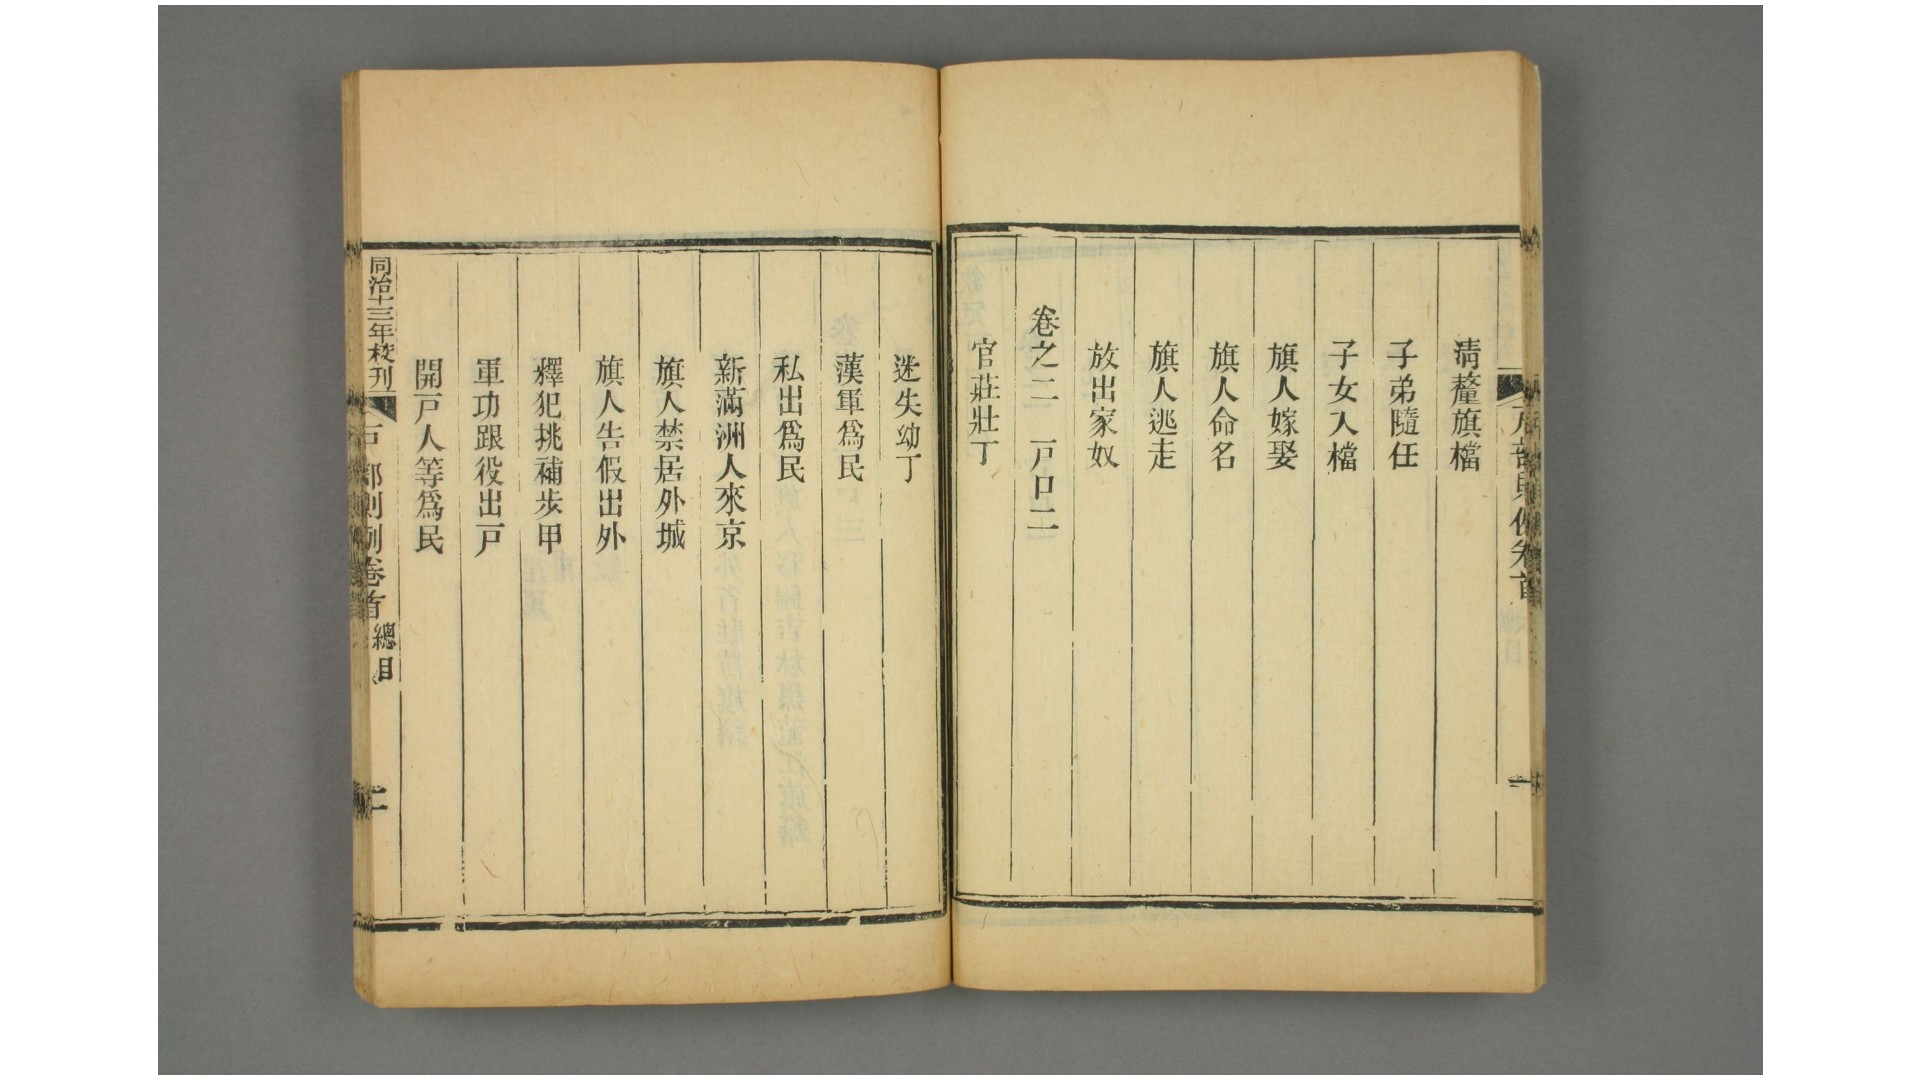 清釐旗檔
子弟隨任
子女入檔
旗人嫁娶
旗人命名
旗人逃走
放出家奴
卷之二　戸口二
官莊壯丁
迷失幼丁
漢軍爲民
私出爲民
新滿洲人來京
旗人禁居外城
旗人告假出外
釋犯挑補步甲
軍功跟役出戸
開戸人等爲民
同治十三年校刊
戸部則例卷首
總目
二